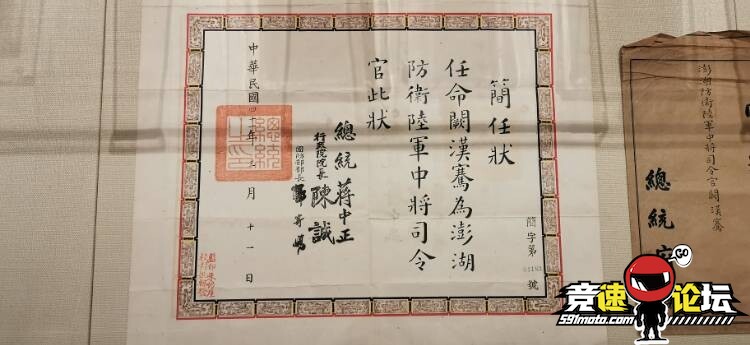 簡任狀
任命闕漢騫為澎湖
防衛陸軍中將司令
官此狀
總統 蔣中正
行政院院長 陳誠
國防部部長
中華民國四十年 月十一日
簡字第 號
澎湖防衛陸軍中將司令官闕漢騫
總統
GO
竞速论坛
591moto.com